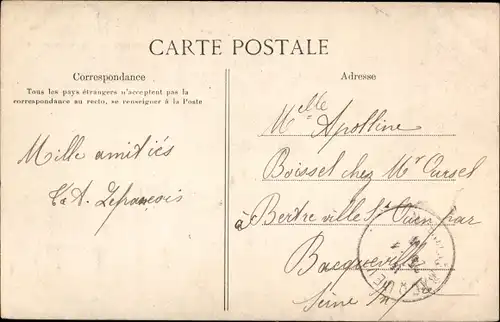 CARTE POSTALE
Correspondance
Tous les pays étrangers n'acceptent pas la
correspondance au recto, se renseigner à la Poste
Mille amitiés
Lefrancois
Adresse
Melle Apolline
Boissel chez Mr Oursel
à Bertreville St Ouen par
Bacqueville
Seine Inf